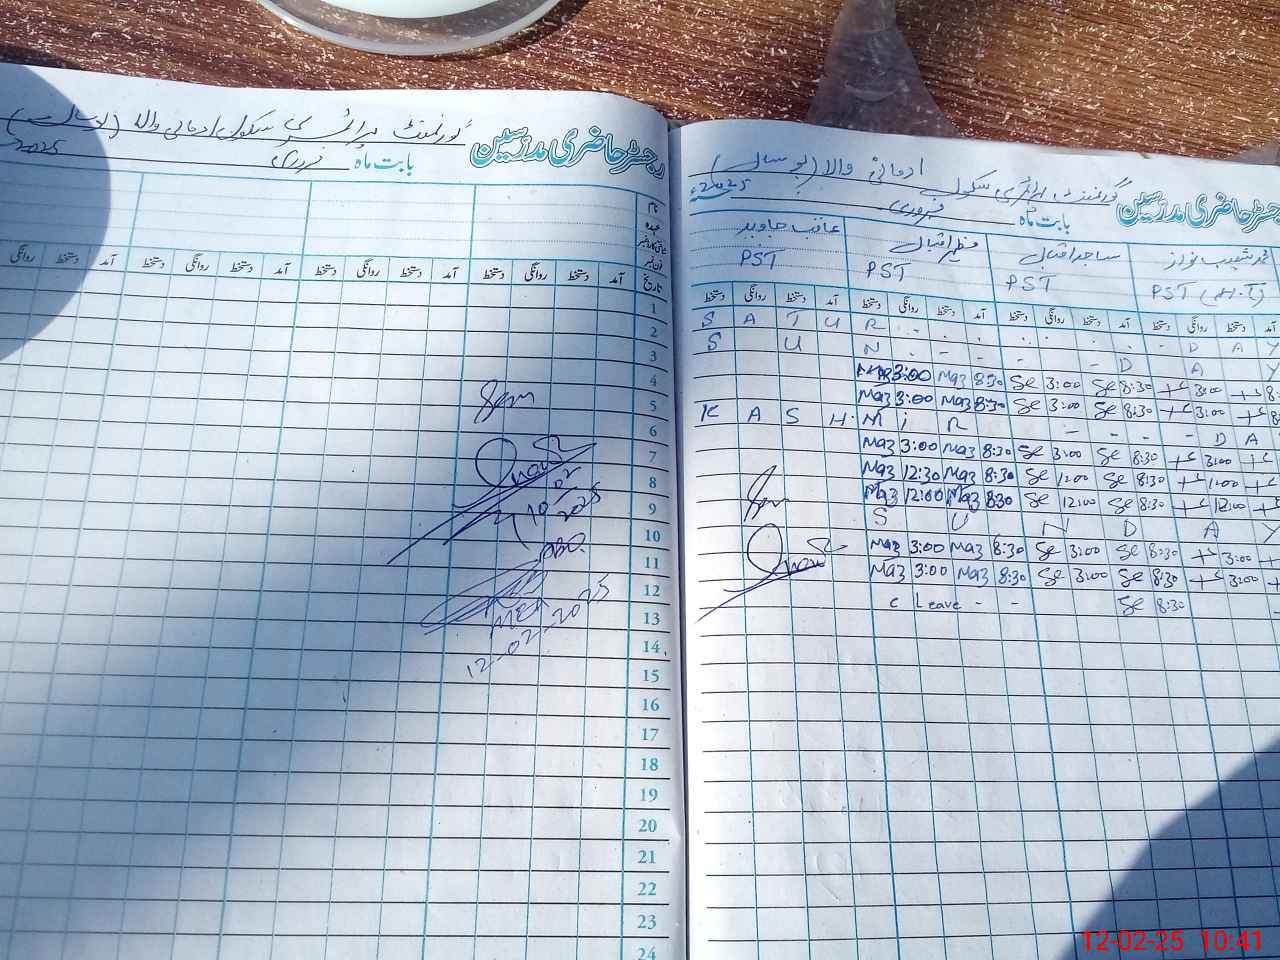 گورنمنٹ پرائمری سکول ادھائی والا (بوسال)
رجسٹر حاضری مدرسین
بابت ماہ فروری 2025
نام
عہدہ
تاریخ
آمد دستخط روانگی دستخط آمد دستخط روانگی دستخط آمد دستخط روانگی دستخط آمد دستخط روانگی
1
2
3
4
5
6
7
8
9
10
11
12
13
14
15
16
17
18
19
20
21
22
23
24
10 02 2025
MEA
12-02-2025
گورنمنٹ پرائمری سکول ادھائی والا (بوسال)
رجسٹر حاضری مدرسین
بابت ماہ فروری 2025ء
محمد شعیب نواز ساجد اقبال مظہر اقبال عاقب جاوید
PST (H.T) PST PST PST
آمد دستخط روانگی دستخط آمد دستخط روانگی دستخط آمد دستخط روانگی دستخط آمد دستخط روانگی دستخط
S A T U R - - - D A Y
S U N - - - - D A Y
3:00 Maz 8:30 Se 3:00 Se 8:30 3:00 8:
Maz 3:00 Maz 8:30 Se 3:00 Se 8:30 3:00 8:
K A S H M i R - - - - D A
Maz 3:00 Maz 8:30 Se 3:00 Se 8:30 3:00
Maz 12:30 Maz 8:30 Se 1:00 Se 8:30 1:00
Maz 12:00 Maz 8:30 Se 12:00 Se 8:30 12:00
S U N D A Y
Maz 3:00 Maz 8:30 Se 3:00 Se 8:30 3:00
Maz 3:00 Maz 8:30 Se 3:00 Se 8:30 3:00
c Leave - - Se 8:30
12-02-25 10:41